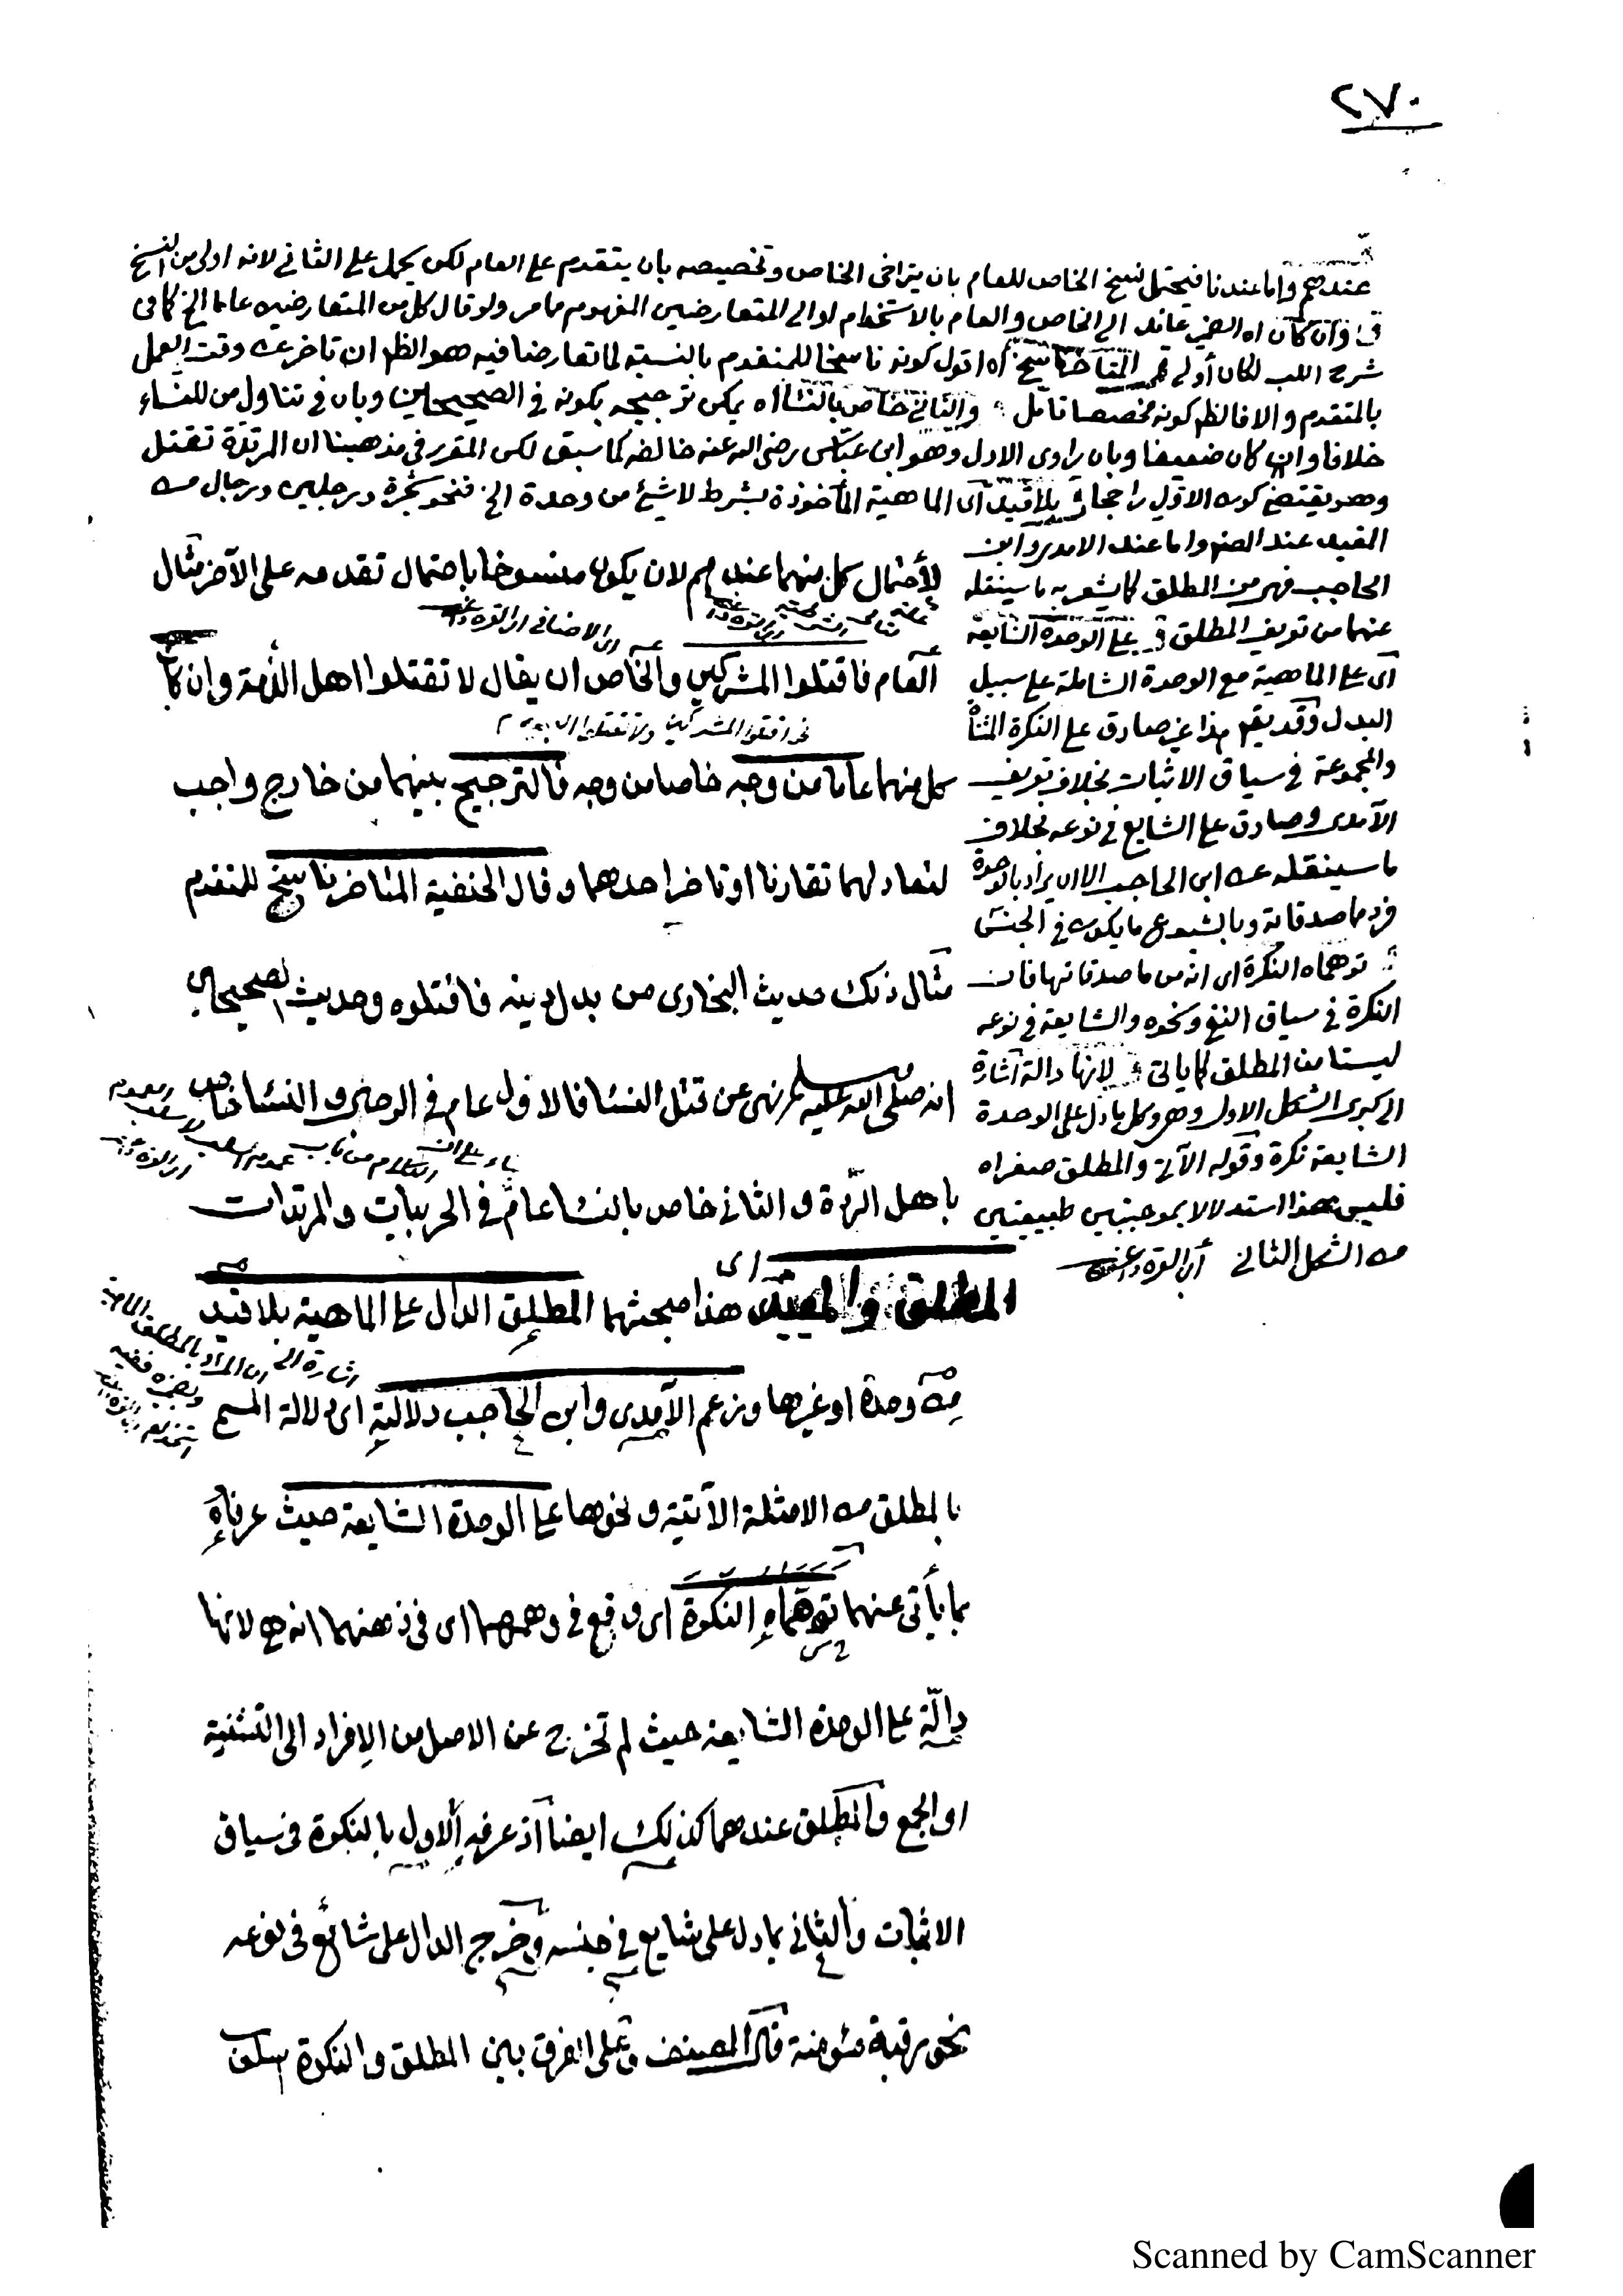 ٢٧٠
عندهم واما عندنا فيحتمل نسخ الخاص للعام بان يتراخى الخاص وتخصيصه بان يتقدم على العام لكن يحمل على الثانى لانه اولى من النسخ
وان كان اه الضمير عائد الى الخاص والعام بالاستخدام او الى المتعارضين المفهوم مما مر ولو قال كل من المتعارضين عاما الخ كما فى
شرح اللب لكان أولى قوله المتاخر ناسخ اه اقول كونه ناسخا للمتقدم بالنسبة لما تعارضا فيه هو الظ ان تاخر عن وقت العمل
بالمتقدم والا فالظ كونه مخصصا تامل والثانى خاص بالنساء اه يمكن ترجيحه بكونه فى الصحيحين وبان فى تناول من للنساء
خلافا وان كان ضعيفا وبان راوى الاول وهو ابن عباس رضى الله عنه خالفه كما سبق لكن المقرر فى مذهبنا ان المرتدة تقتل
وهو يقتضى كون الاول راجحا بلا قيد اى الماهية المأخوذة بشرط لا شئ من وحدة الخ فنحو تمرة ورجلين ورجال من
المقيد عند المص واما عند الامدى وابن
الحاجب فهى من المطلق كما يشعر به ما سينقله
عنهما من تعريف المطلق على الوحدة الشايعة
اى على الماهية مع الوحدة الشاملة على سبيل
البدل وقد يقم هذا غير صادق على النكرة المثناة
والمجموعة فى سياق الاثبات بخلاف تعريف
الآمدى وصادق على الشايع فى نوعه بخلاف
ما سينقله عن ابن الحاجب الا ان يراد بالوحدة
فرد ما صدقاته وبالشيوع ما يكون فى الجنس
توهماه النكرة اى انه من ماصدقاتها فان
النكرة فى سياق النفى ونحوه والشايعة فى نوعه
ليستا من المطلق كما ياتى لانها دالة اشارة
الى كبرى الشكل الاول وهو وكل ما دل على الوحدة
الشايعة نكرة وقوله الآتى والمطلق صغراه
فليس هذا استدلالا بموجبتين طبيعتين
من الشكل الثانى
لأحتمال كل منهما عندهم لان يكون منسوخا باحتمال تقدمه على الآخر مثال
العام فاقتلوا المشركين والخاص ان يقال لا تقتلوا اهل الذمة وان كان
نحو اقتلوا المشركين ولا تقتلوا
كل منهما عاما من وجه خاصا من وجه فالترجيح بينهما من خارج واجب
لتعادلهما تقارنا او تاخر احدهما وقال الحنفية المتاخر ناسخ للمتقدم
مثال ذلك حديث البخارى من بدل دينه فاقتلوه وحديث الصحيحين
انه صلى الله عليه وسلم نهى عن قتل النسا فالاول عام فى الرجال والنسا خاص
باهل الردة والثانى خاص بالنسا عام فى الحربيات والمرتدات
المطلق والمقيد اى هذا مبحثهما المطلق الدال على الماهية بلا قيد
من وحدة او غيرها وزعم الآمدى وابن الحاجب دلالته اى دلالة المسمى
بالمطلق من الامثلة الآتية ونحوها على الوحدة الشايعة حيث عرفاه
بما يأتى عنهما توهماه النكرة اى وقع فى وهمهما اى فى ذهنهما انه هى لانها
دالة على الوحدة الشايعة حيث لم تخرج عن الاصل من الافراد الى التثنية
او الجمع والمطلق عندهما كذلك ايضا اذ عرفه الاول بالنكرة فى سياق
الاثبات والثانى بما دل على شايع فى جنسه وخرج الدال على شائع فى نوعه
نحو رقبة مؤمنة قال المصنف وعلى الفرق بين المطلق والنكرة اسلوب
Scanned by CamScanner